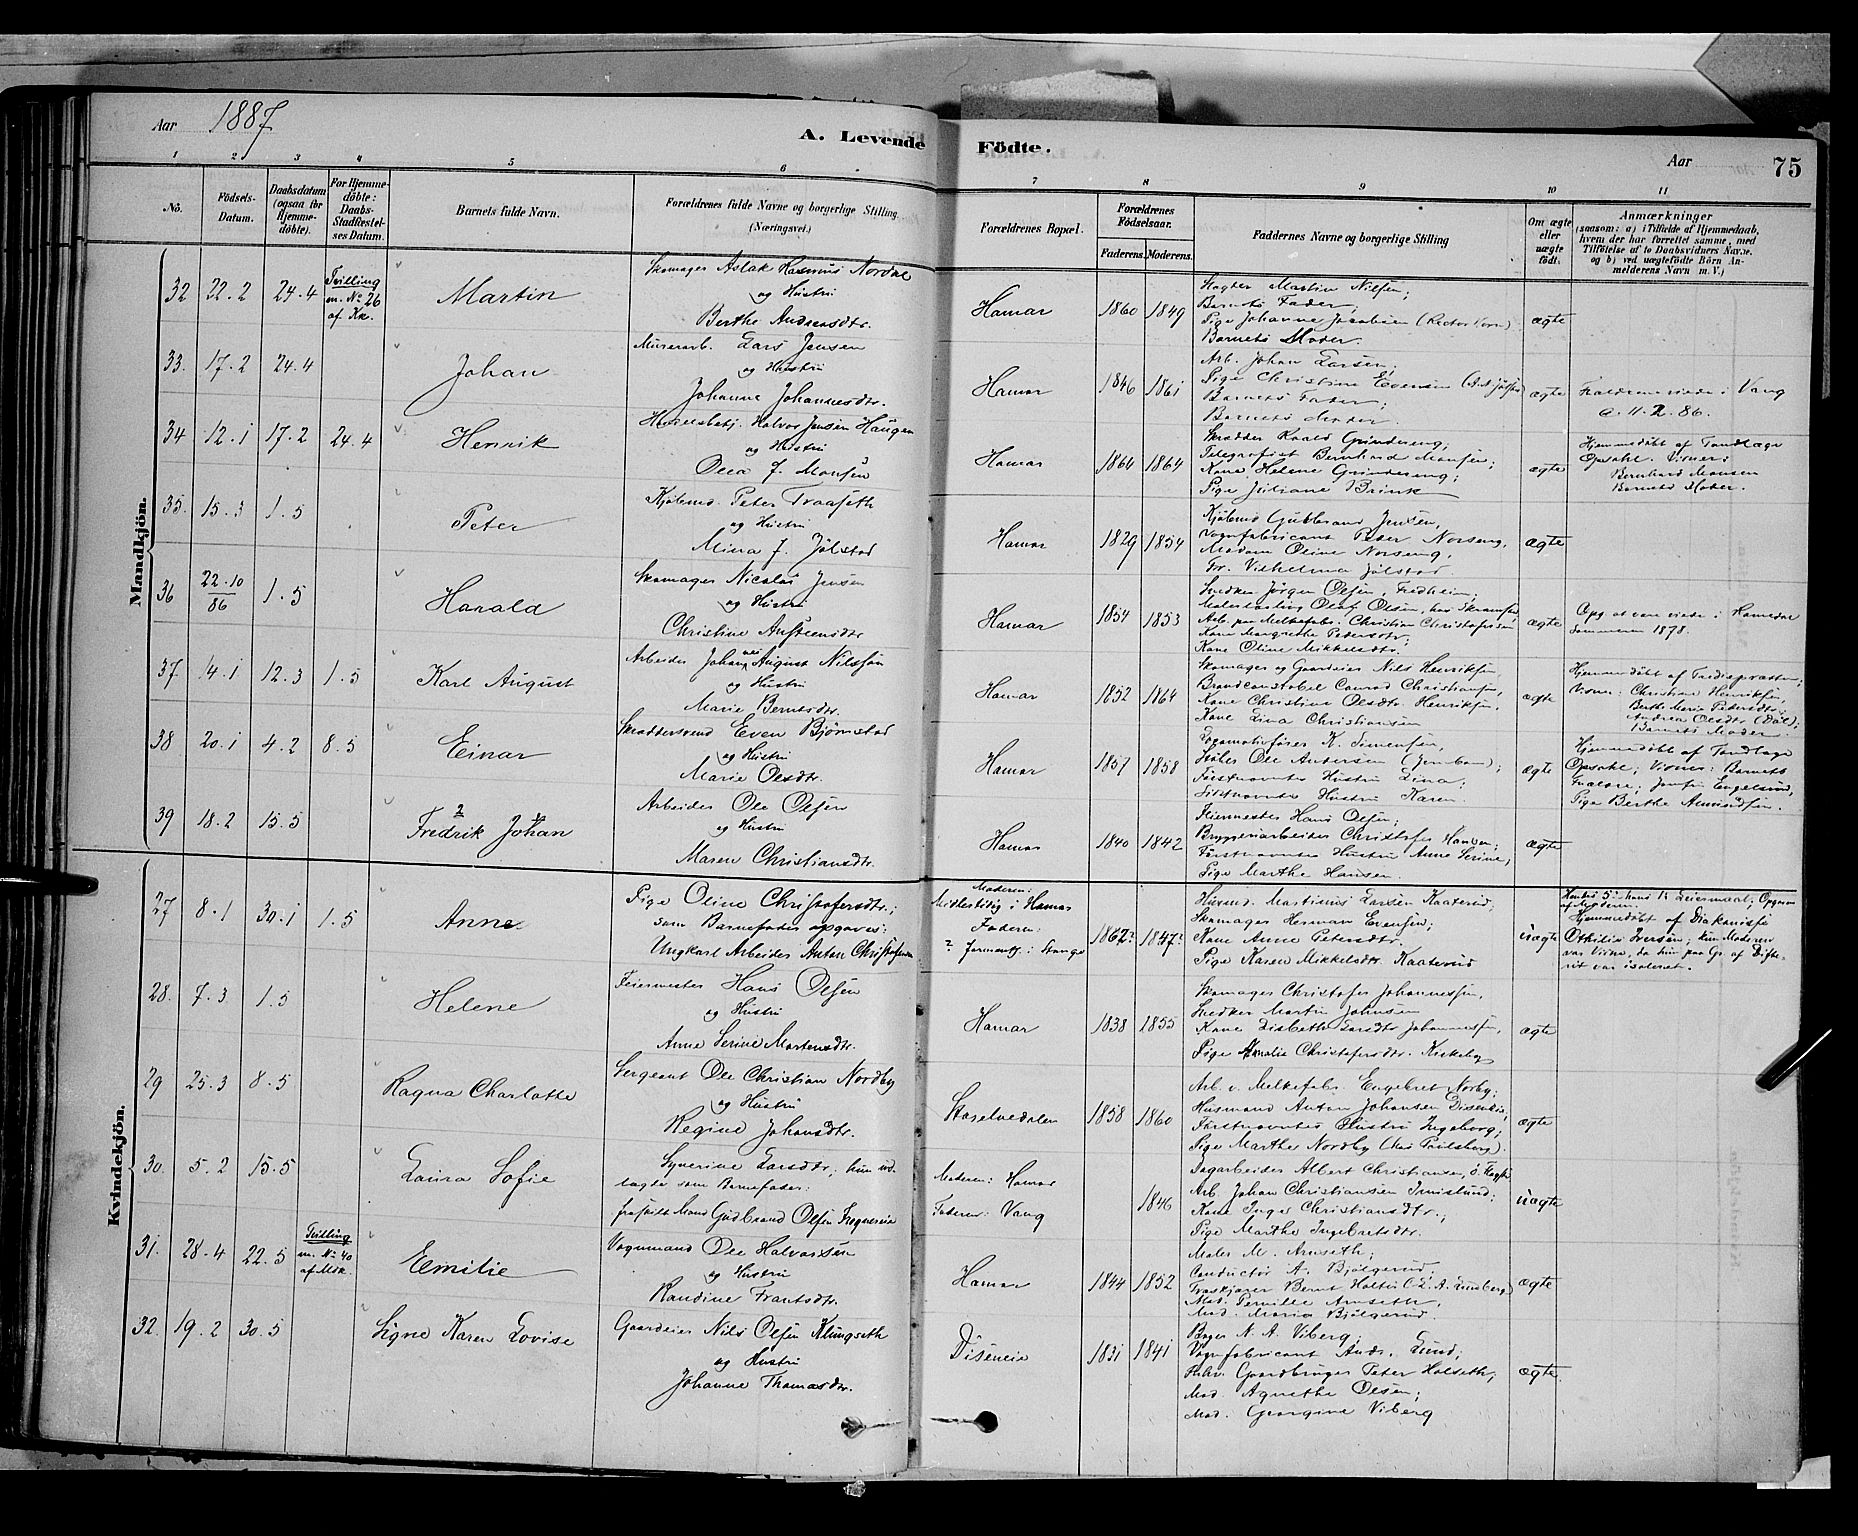 Aar 1887
A. Levende Födte.
Aar 75
1 2 3 4 5 6 7 8 9 10 11
No.
Födsels-Datum.
Daabsdatum (ogsaa for Hjemme-döbte).
For Hjemme-döbte: Daabs-Stadfæstel-ses Datum.
Barnets fulde Navn.
Forældrenes fulde Navne og borgerlige Stilling. (Næringsvei.)
Forældrenes Bopæl.
Forældrenes Födselsaar.
Faderens. Moderens.
Faddernes Navne og borgerlige Stilling
Om ægte eller uægte födt.
Anmærkninger
(saasom: a) i Tilfælde af Hjemmedaab,
hvem der har forrettet samme, med
Tilföielse af to Daabsvidners Navne,
og b) ved uægtefödte Börn An-
melderens Navn m. V.)
Mandkjön.
32 22.2 24.4 Tvilling m. No 26 af Kk. Martin
Skomager Aslak Nordal
og Hustru
Berthe Andreasdtr.
Hamar 1860 1849
Martin Nilsen;
Barnets Fader;
Pige Johanne Jacobsen
Barnets Moder.
ægte
33. 17.2 24.4 Johan
Murerarb. Lars Jensen
og Hustru
Johanne Johannesdtr.
Hamar 1846 1861
Arb. Johan Larsen;
Pige Christine Evensen
Barnets Fader;
Barnets Moder.
ægte
Forældrene viede i Vang
d. 11.2.86.
34 12.1 17.2 24.4 Henrik
Halvor Jensen Haugen
og Hustru
Olea J. Monsen
Hamar 1864 1864
Skrædder Roald Grindereng;
Telegrafist Bernhard Monsen;
Kone Helene Grindereng;
Pige Juliane Brink
ægte
Hjemmedöbt af Tandlæge
Opsahl. Vidner:
Bernhard Monsen
Barnets Moder.
35. 15.3 1.5 Peter
Kjöbmd. Peter Traaseth
og Hustru
Mina J. Jølstad
Hamar 1829 1854
Kjöbmd Gulbrand Jensen,
Vognfabricant Peder Norseng,
Madam Oline Norseng,
Fr. Vilhelmina Jølstad
ægte
36 22.10/86 1.5 Harald
Skomager Nicolai Jensen
og Hustru
Christine Austensdtr
Hamar 1854 1853
Snedker Jörgen Olsen, Fredheim;
Malerlærling Olaf Olsen,
Arb. paa Melkefabr. Christian Christofersen
Kone Margrethe Pedersdtr;
Kone Oline Mikkelsdtr.
ægte
Opg. at være viede i
Sommeren 1878.
37 4.1 12.3 1.5 Karl August
Arbeider Johannes August Nilssön
og Hustru
Marie Berntsdtr.
Hamar 1852 1864
Skomager og Gaardeier Nils Henriksen,
Brandconstabel Conrad Christiansen,
Kone Christine Olsdtr. Henriksen,
Kone Lina Christiansen
ægte
Hjemmedöbt af
Vidner: Christian Henriksen,
Berthe Marie Pedersdtr.
Andrea Olsdtr (Dal);
Barnets Moder.
38 20.1 4.2 8.5 Einar
Skræddersvend Even Bjørnstad
og Hustru
Marie Olsdtr.
Hamar 1857 1858
Locomotivfører K. Simensen,
Ole Andersen
Förstnævntes Hustru Lina;
Sidstnævntes Hustru Karen
ægte
Hjemmedöbt af Tandlæge
Opsahl; Vidner: Barnets
Forældre;
Pige Berthe Amundsen.
39 18.2 15.5 Fredrik Johan
Arbeider Ole Olsen
og Hustru
Maren Christiansdtr.
Hamar 1840 1842
Feiermester Hans Olsen;
Bryggeriarbeider Christofer Hansen;
Förstnævntes Hustru Anne Serine;
Pige Marthe Hansen.
ægte
Kvindekjön.
27 8.1 30.1 1.5 Anne
Pige Oline Christofersdtr;
som Barnefader opgaves:
Ungkarl Arbeider Anton Christofersen
Moderen:
Midlertidig i Hamar
Faderen:
i Stange
1862? 1847?
Husmd. Martinius Larsen Kaaterud;
Skomager Herman Evensen;
Kone Anne Petersdtr.
Pige Karen Mikkelsdtr. Kaaterud
uægte
Hendes 5te hans 1ste Leiermaal, Opgivet
af Moderen.
Hjemmedöbt af Diakonisse
Othilie Iversen; kun Moderen
var Vidne, da hun paa Gr. af Difte-
rit var isoleret.
28. 7.3 1.5 Helene
Feiermester Hans Olsen
og Hustru
Anne Serine Martensdtr.
Hamar 1838 1855
Skomager Christofer Johannesen,
Snedker Martin Johnsen
Kone Lisbeth Larsdtr Johannesen,
Pige Amalie Christofersdtr. Kirkeby
ægte
29 25.3 8.5 Ragna Charlotte
Sergeant Ole Christian Nordby
og Hustru
Regine Johansdtr.
1858 1860
Arb. v. Melkefabr. Engebret Norby;
Husmand Anton Johansen Disenеie,
Förstnævntes Hustru Ingeborg,
Pige Marthe Nordby
ægte
30. 5.2 15.5 Laura Sofie
Syverine Larsdtr; hun ud-
lagde som Barnefader:
fraskilt Mand Gudbrand Olsen
Moderen: Hamar
Faderen: Vang
1846
Dagarbeider Albert Christiansen,
Arb. Johan Christiansen Imislund;
Kone Inger Christiansdtr.;
Pige Marthe Ingebretsdtr.
uægte
31. 28.4 22.5 Tvilling m. No 40 af Mdk. Emilie
Vognmand Ole Halvorsen
og Hustru
Randine Frantsdtr.
Hamar 1844 1852
Maler M. Amseth;
Conductør A. Bjølgerud;
Bernt Holter
Mad. Pernille Amseth,
Mad. Maria Bjølgerud.
ægte
32. 19.2 30.5 Signe Karen Lovise
Gaardeier Nils Olsen Klungseth
og Hustru
Johanne Thomasdtr.
Diseneie 1831 1841
Bager N. A. Viberg;
Vognfabricant Ands. Lund;
Gaardbruger Peter Holseth,
Mad. Agnethe Olsen;
Mad. Georgine Viberg
ægte.